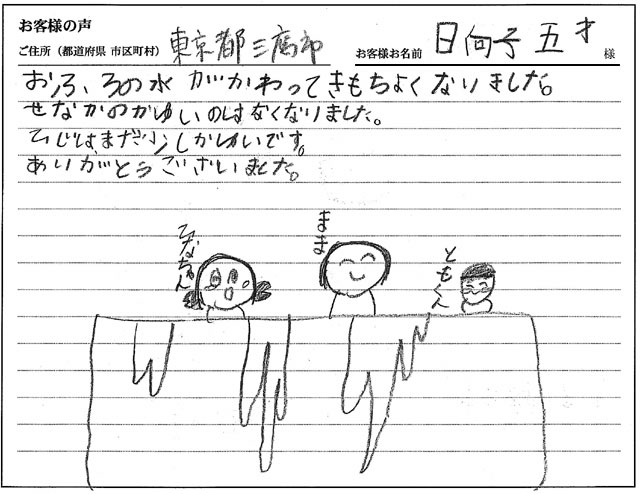 お客様の声
ご住所（都道府県 市区町村） 東京都三鷹市 お客様お名前 日向子 五才 様
おふろの水がかわってきもちよくなりました。
せなかのかゆいのはなくなりました。
ひじはまだ少しかゆいです。
ありがとうございました。
ひなちゃん
まま
ともくん